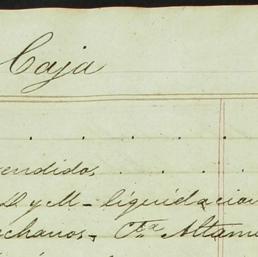 Caja
. . . . . .
endidos . . .
D y M - liquidacion
chanos, Fca Altam